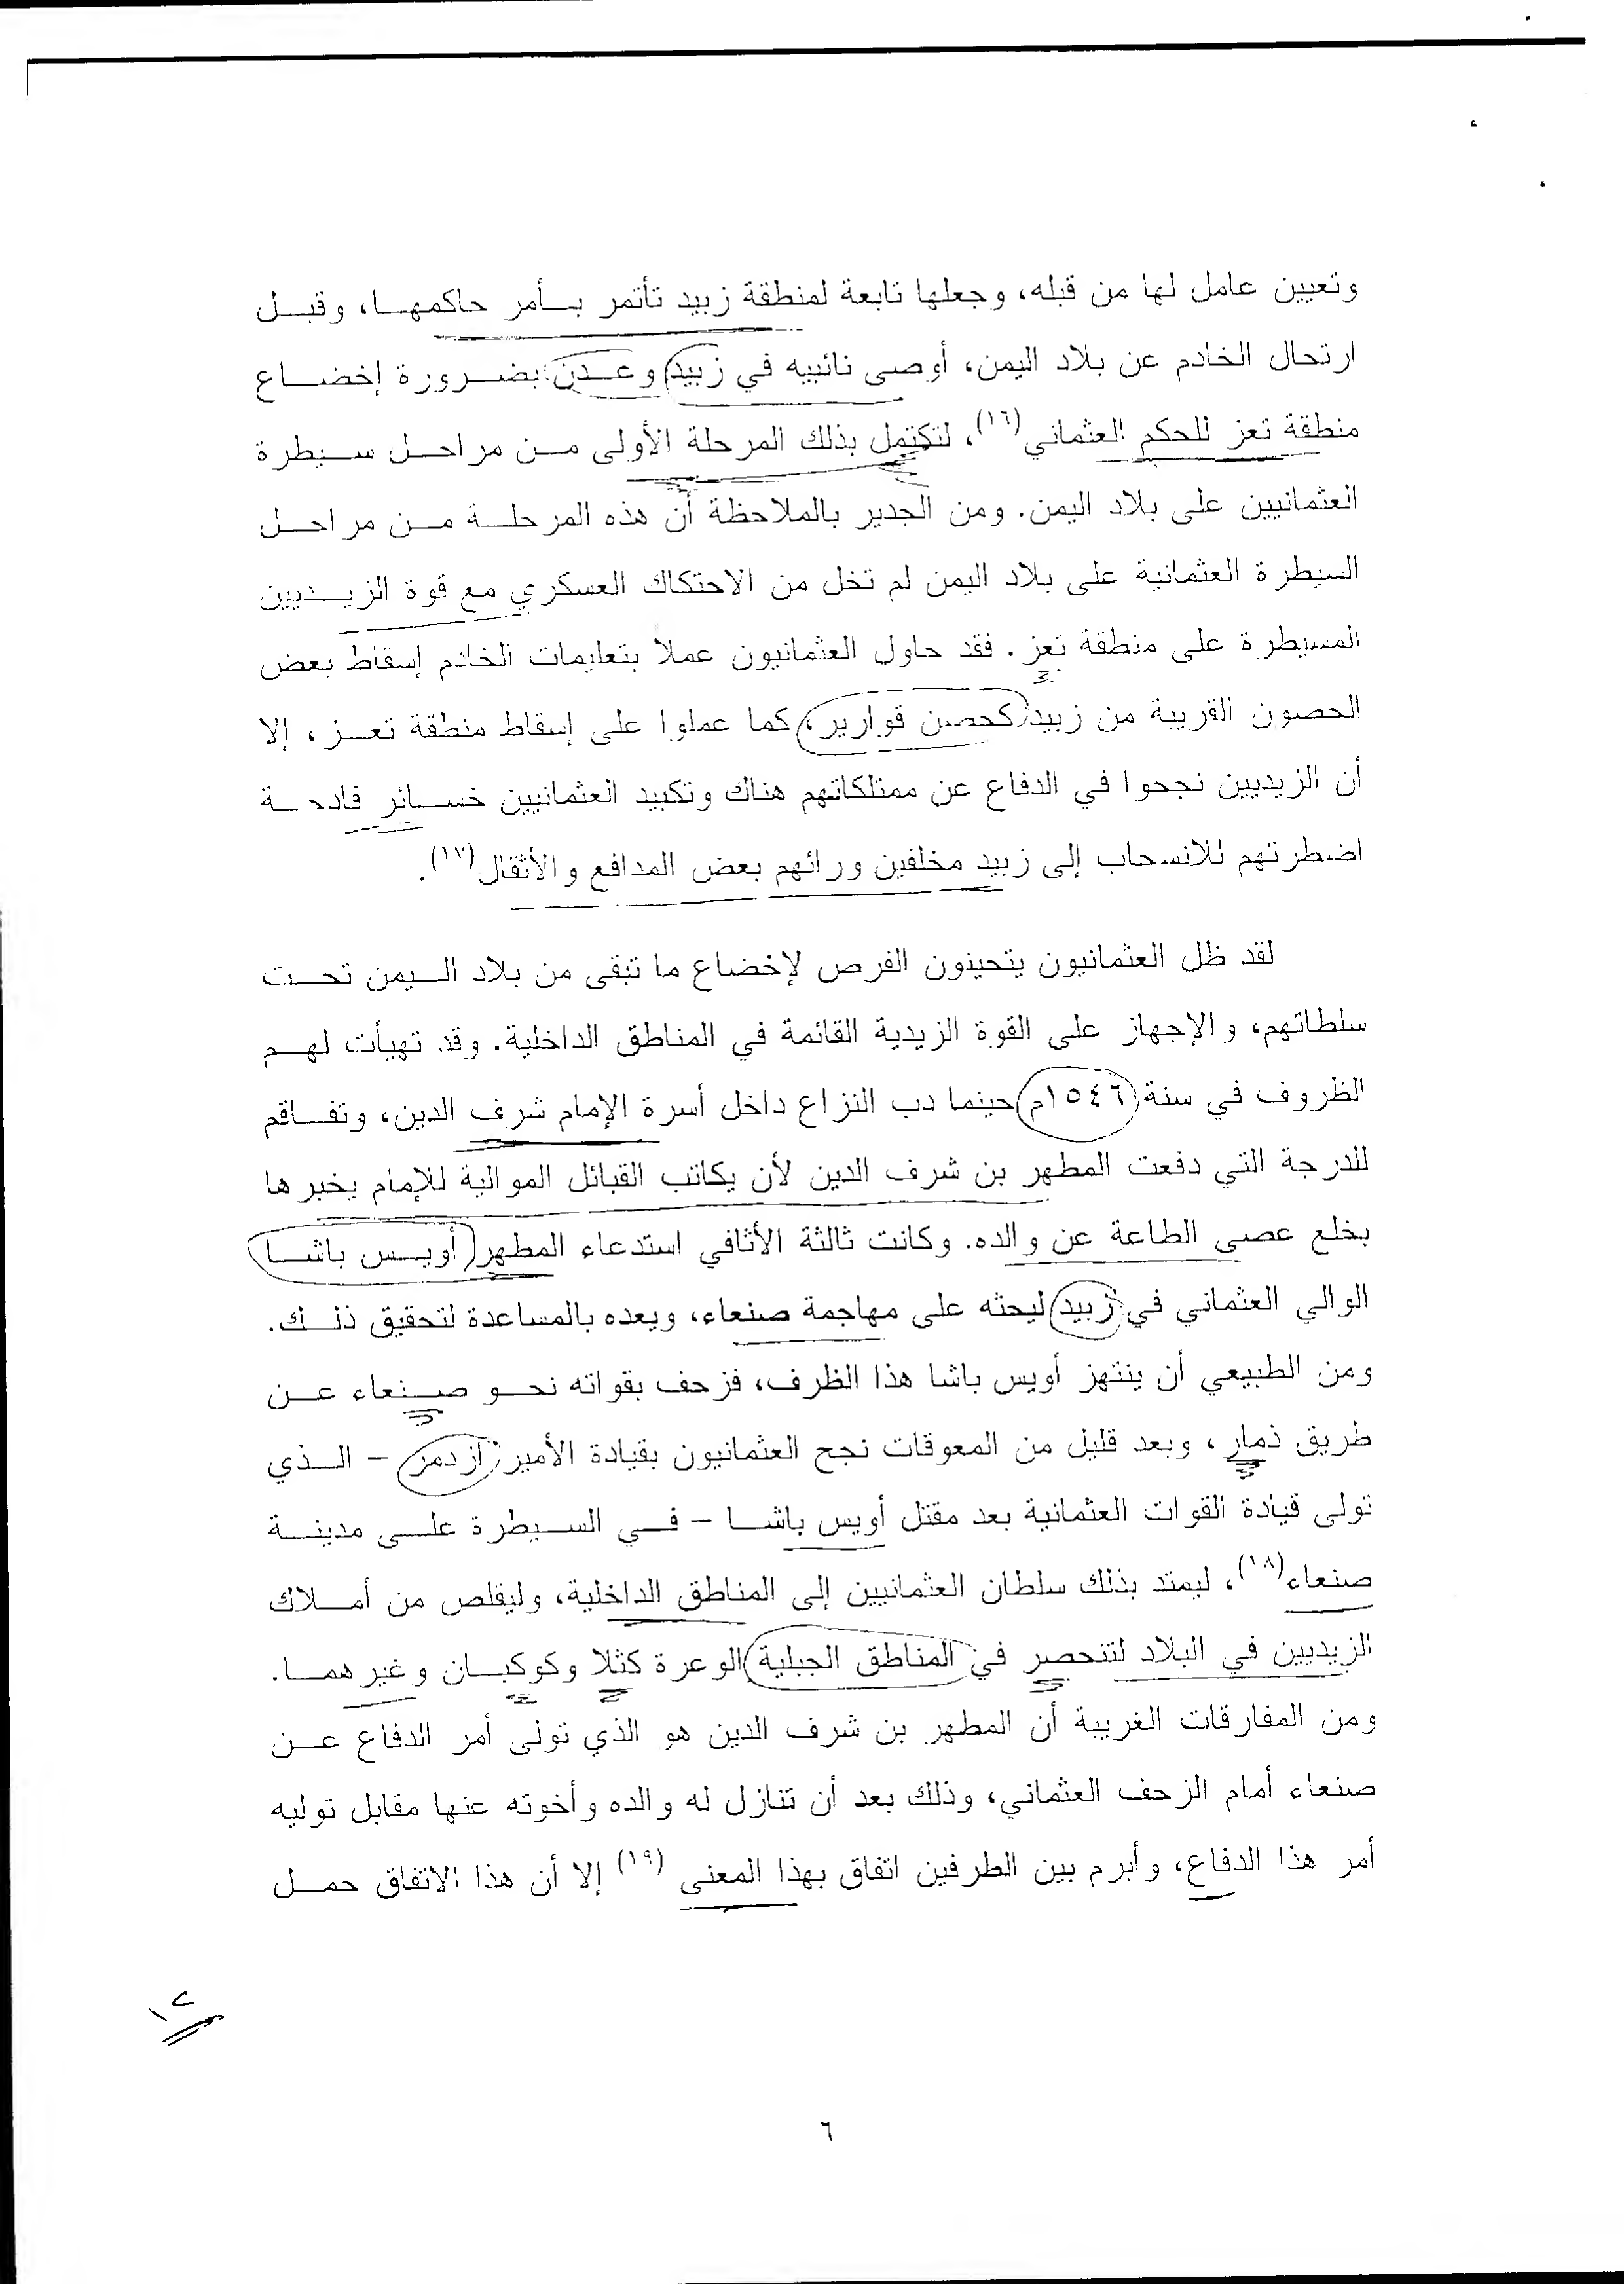 وتعيين عامل لها من قبله، وجعلها تابعة لمنطقة زبيد تأتمر بأمر حاكمها، وقبل
ارتحال الخادم عن بلاد اليمن، أوصى نائبيه في زبيد وعدن بضرورة إخضاع
منطقة تعز للحكم العثماني(١٦)، لتكتمل بذلك المرحلة الأولى من مراحل سيطرة
العثمانيين على بلاد اليمن. ومن الجدير بالملاحظة أن هذه المرحلة من مراحل
السيطرة العثمانية على بلاد اليمن لم تخل من الاحتكاك العسكري مع قوة الزيديين
المسيطرة على منطقة تعز. فقد حاول العثمانيون عملا بتعليمات الخادم إسقاط بعض
الحصون القريبة من زبيد كحصن قوارير، كما عملوا على إسقاط منطقة تعز، إلا
أن الزيديين نجحوا في الدفاع عن ممتلكاتهم هناك وتكبيد العثمانيين خسائر فادحة
اضطرتهم للانسحاب إلى زبيد مخلفين ورائهم بعض المدافع والأثقال(١٧).
لقد ظل العثمانيون يتحينون الفرص لإخضاع ما تبقى من بلاد اليمن تحت
سلطاتهم، والإجهاز على القوة الزيدية القائمة في المناطق الداخلية. وقد تهيأت لهم
الظروف في سنة ١٥٤٦م حينما دب النزاع داخل أسرة الإمام شرف الدين، وتفاقم
للدرجة التي دفعت المطهر بن شرف الدين لأن يكاتب القبائل الموالية للإمام يخبرها
بخلع عصى الطاعة عن والده. وكانت ثالثة الأثافي استدعاء المطهر أويس باشا
الوالي العثماني في زبيد ليحثه على مهاجمة صنعاء، ويعده بالمساعدة لتحقيق ذلك.
ومن الطبيعي أن ينتهز أويس باشا هذا الظرف، فزحف بقواته نحو صنعاء عن
طريق ذمار، وبعد قليل من المعوقات نجح العثمانيون بقيادة الأمير ازدمر – الذي
تولى قيادة القوات العثمانية بعد مقتل أويس باشا – في السيطرة على مدينة
صنعاء(١٨)، ليمتد بذلك سلطان العثمانيين إلى المناطق الداخلية، وليقلص من أملاك
الزيديين في البلاد لتنحصر في المناطق الجبلية الوعرة كثلا وكوكبان وغيرهما.
ومن المفارقات الغريبة أن المطهر بن شرف الدين هو الذي تولى أمر الدفاع عن
صنعاء أمام الزحف العثماني، وذلك بعد أن تنازل له والده وأخوته عنها مقابل توليه
أمر هذا الدفاع، وأبرم بين الطرفين اتفاق بهذا المعنى (١٩) إلا أن هذا الاتفاق حمل
٦